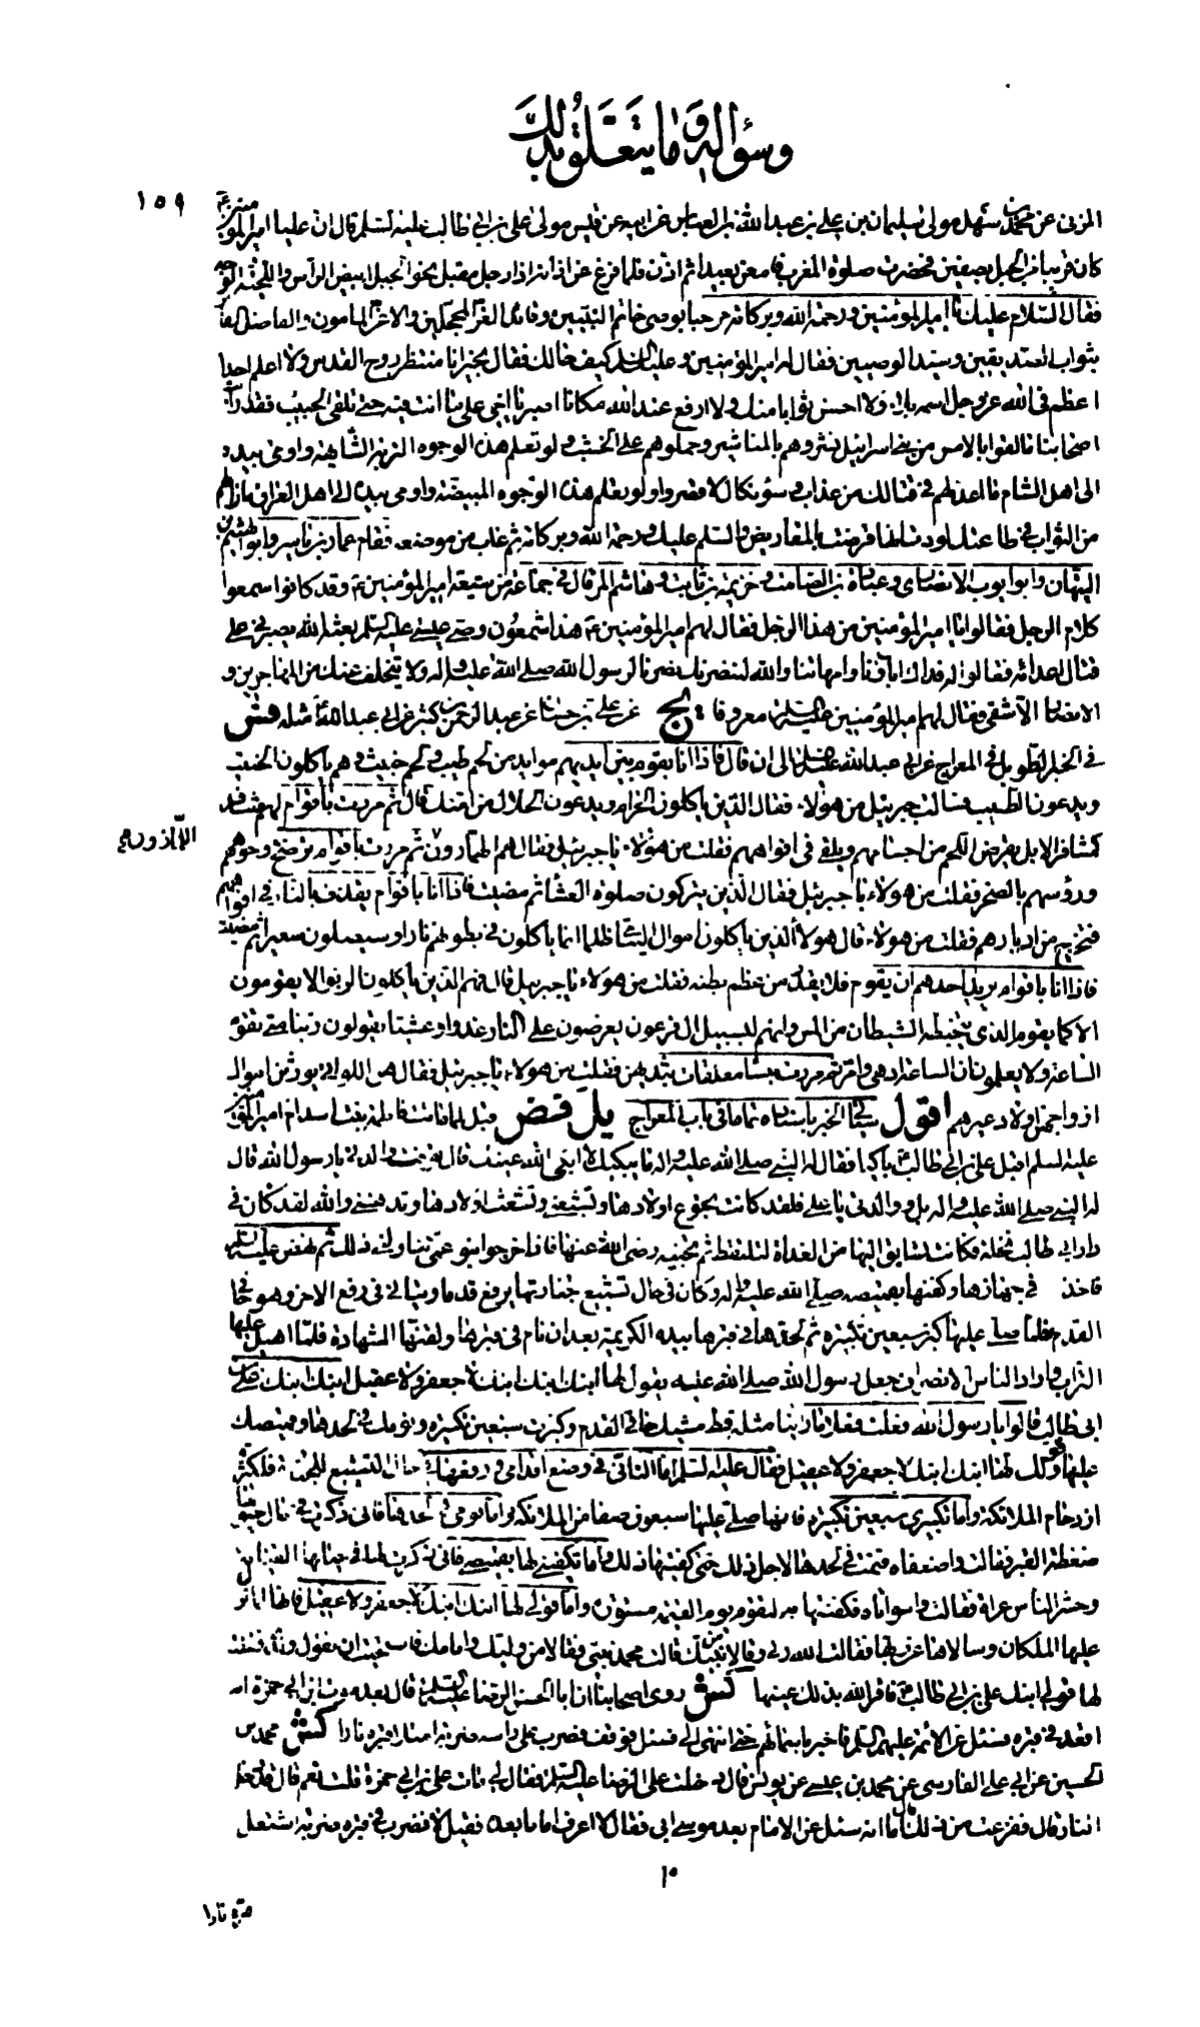 وسؤاله وما يتعلق بذلك
١٥٩
المزنى عن محمد بن سهل مولى سليمان بن على بن عبد الله بن العباس عن ابيه عن قيس مولى على بن ابى طالب عليه السلم قال ان عليا امير المؤمنين ع
كان قريبا من الجبل بصفين فحضرت صلوة المغرب فامعن بعيدا ثم اذن فلما فرغ عن اذانه اذا رجل مقبل نحو الجبل ابيض الراس واللحية والوجه
فقال السلام عليك يا امير المؤمنين ورحمة الله وبركاته مرحبا بوصى خاتم النبيين وقائد الغر المحجلين والاغر المامون والفاضل الفائز
بثواب الصديقين وسيد الوصيين فقال له امير المؤمنين وعليك السلم كيف حالك فقال بخير انا منتظر روح القدس ولا اعلم احدا
اعظم فى الله عز وجل اسمه بلاء ولا احسن ثوابا منك ولا ارفع عند الله مكانا اصبر يا اخى على ما انت فيه حتى تلقى الحبيب فقد رايت
اصحابنا ما لقوا بالامس من بنى اسرائيل نشروهم بالمناشير وحملوهم على الخشب ولو تعلم هذه الوجوه التربة الشائهة واومى بيده
الى اهل الشام ما اعد لهم فى قتالك من عذاب وسوء نكال لاقصروا ولو تعلم هذه الوجوه المبيضة واومى بيده الى اهل العراق ماذا لهم
من الثواب فى طاعتك لودت انها قرضت بالمقاريض والسلم عليك ورحمة الله وبركاته ثم غاب من موضعه فقام عمار بن ياسر وابو الهيثم بن
التيهان وابو ايوب الانصارى وعبادة بن الصامت وخزيمة بن ثابت وهاشم المرقال فى جماعة من شيعة امير المؤمنين ع وقد كانوا سمعوا
كلام الرجل فقالوا يا امير المؤمنين من هذا الرجل فقال لهم امير المؤمنين ع هذا شمعون وصى عيسى عليه السلم بعثه الله يصبرنى على
قتال اعدائه فقالوا له فداك اباؤنا وامهاتنا والله لننصرنك نصرنا لرسول الله صلى الله عليه واله ولا يتخلف عنك من المهاجرين و
الانصار الا شقى فقال لهم امير المؤمنين عليه السلم معروفا يج عن على بن حسان عن عبد الرحمن بن كثير عن ابى عبد الله ع مثله فس
فى الخبر الطويل فى المعراج عن ابى عبد الله عليه السلم الى ان قال فاذا انا بقوم بين ايديهم موائد من لحم طيب ولحم خبيث وهم ياكلون الخبيث
ويدعون الطيب فسالت جبرئيل من هؤلاء فقال الذين ياكلون الحرام ويدعون الحلال من امتك قال ثم مررت باقوام لهم مشافر
كمشافر الابل يقرض اللحم من اجسامهم ويلقى فى افواههم فقلت من هؤلاء يا جبرئيل فقال هم الهمازون ثم مررت باقوام ترضخ وجوههم
اللمازون ع
ورؤسهم بالصخر فقلت من هؤلاء يا جبرئيل فقال الذين يتركون صلوة العشاء ثم مضيت فاذا انا باقوام يقذف بالنار فى افواههم
فتخرج من ادبارهم فقلت من هؤلاء قال هولاء الذين ياكلون اموال اليتامى ظلما انما ياكلون فى بطونهم نارا وسيصلون سعيرا ثم مضيت
فاذا انا باقوام يريد احدهم ان يقوم فلا يقدر من عظم بطنه فقلت من هؤلاء يا جبرئيل قال فهم الذين ياكلون الربوا لا يقومون
الا كما يقوم الذى يتخبطه الشيطان من المس وانهم لبسبيل ال فرعون يعرضون على النار غدوا وعشيا يقولون ربنا متى تقوم
الساعة ولا يعلمون ان الساعة ادهى وامر ثم مررت بنساء معلقات بثديهن فقلت من هؤلاء يا جبرئيل فقال هن اللواتى يورثن اموال
ازواجهن اولاد غيرهم اقول سياتى الخبر باسناده تماما فى باب المعراج يل فض قيل لما ماتت فاطمة بنت اسد ام امير المؤمنين
عليه السلم اقبل على بن ابى طالب ع باكيا فقال له النبى صلى الله عليه واله ما يبكيك لا ابكى الله عينيك قال توفيت والدتى يا رسول الله قال
له النبى صلى الله عليه واله بل ووالدتى يا على فلقد كانت تجوع اولادها وتشبعنى وتشعث اولادها وتدهننى والله لقد كان فى
دار ابى طالب نخلة فكانت تسابق اليها من الغداة لتلتقط ثم تجنيه رضى الله عنها فاذا خرجوا بنو عمى تناولنى ذلك ثم نهض عليه السلم
فاخذ فى جهازها وكفنها بقميصه صلى الله عليه واله وكان فى حال تشييع جنازتها يرفع قدما ويتانى فى رفع الاخر وهو حافى
القدم فلما صلى عليها كبر سبعين تكبيرة ثم لحدها فى قبرها بيده الكريمة بعد ان نام فى قبرها ولقنها الشهادة فلما اهيل عليها
التراب واراد الناس الانصراف جعل رسول الله صلى الله عليه يقول لها ابنك ابنك ابنك لا جعفر ولا عقيل ابنك ابنك على بن
ابى طالب قالوا يا رسول الله فعلت فعلا ما راينا مثله قط مشيك حافى القدم وكبرت سبعين تكبيرة ونومك فى لحدها وقميصك
عليها وقولك لها ابنك ابنك لا جعفر ولا عقيل فقال عليه السلم اما التانى فى وضع اقدامى ورفعها فى حال التشييع للجنازة فلكثرة
ازدحام الملائكة واما تكبيرى سبعين تكبيرة فانها صلى عليها سبعون صفا من الملائكة واما نومى فى لحدها فانى ذكرت فى حال حيوتها
ضغطة القبر فقالت واضعفاه فنمت فى لحدها لاجل ذلك حتى كفيتها ذلك واما تكفينى لها بقميصى فانى ذكرت لها فى حياتها القيامة
وحشر الناس عراة فقالت واسواتاه فكفنتها به لتقوم يوم القيمة مستورة واما قولى لها ابنك ابنك لا جعفر ولا عقيل فانها لما نزل
عليها الملكان وسالاها عن ربها فقالت الله ربى وقالا من نبيك قالت محمد نبيى فقالا من وليك وامامك فاستحيت ان تقول ولدى فقلت
لها قولى ابنك على بن ابى طالب ع فاقر الله بذلك عينها كش روى اصحابنا ان ابا الحسن الرضا عليه السلم قال بعد موت ابن ابى حمزة انه
اقعد فى قبره فسئل عن الائمة عليهم السلم فاخبر باسمائهم حتى انتهى الى فسئل فوقف فضرب على راسه ضربة امتلا قبره نارا كش محمد بن
الحسين عن ابى على الفارسى عن محمد بن عيسى عن يونس قال دخلت على الرضا عليه السلم فقال لى مات على بن ابى حمزة قلت نعم قال قد دخل
النار قال ففزعت من ذلك قال اما انه سئل عن الامام بعد موسى ابى فقال لا اعرف اماما بعده فقيل لا فضرب فى قبره ضربة اشتعل
١٠
قبره نارا